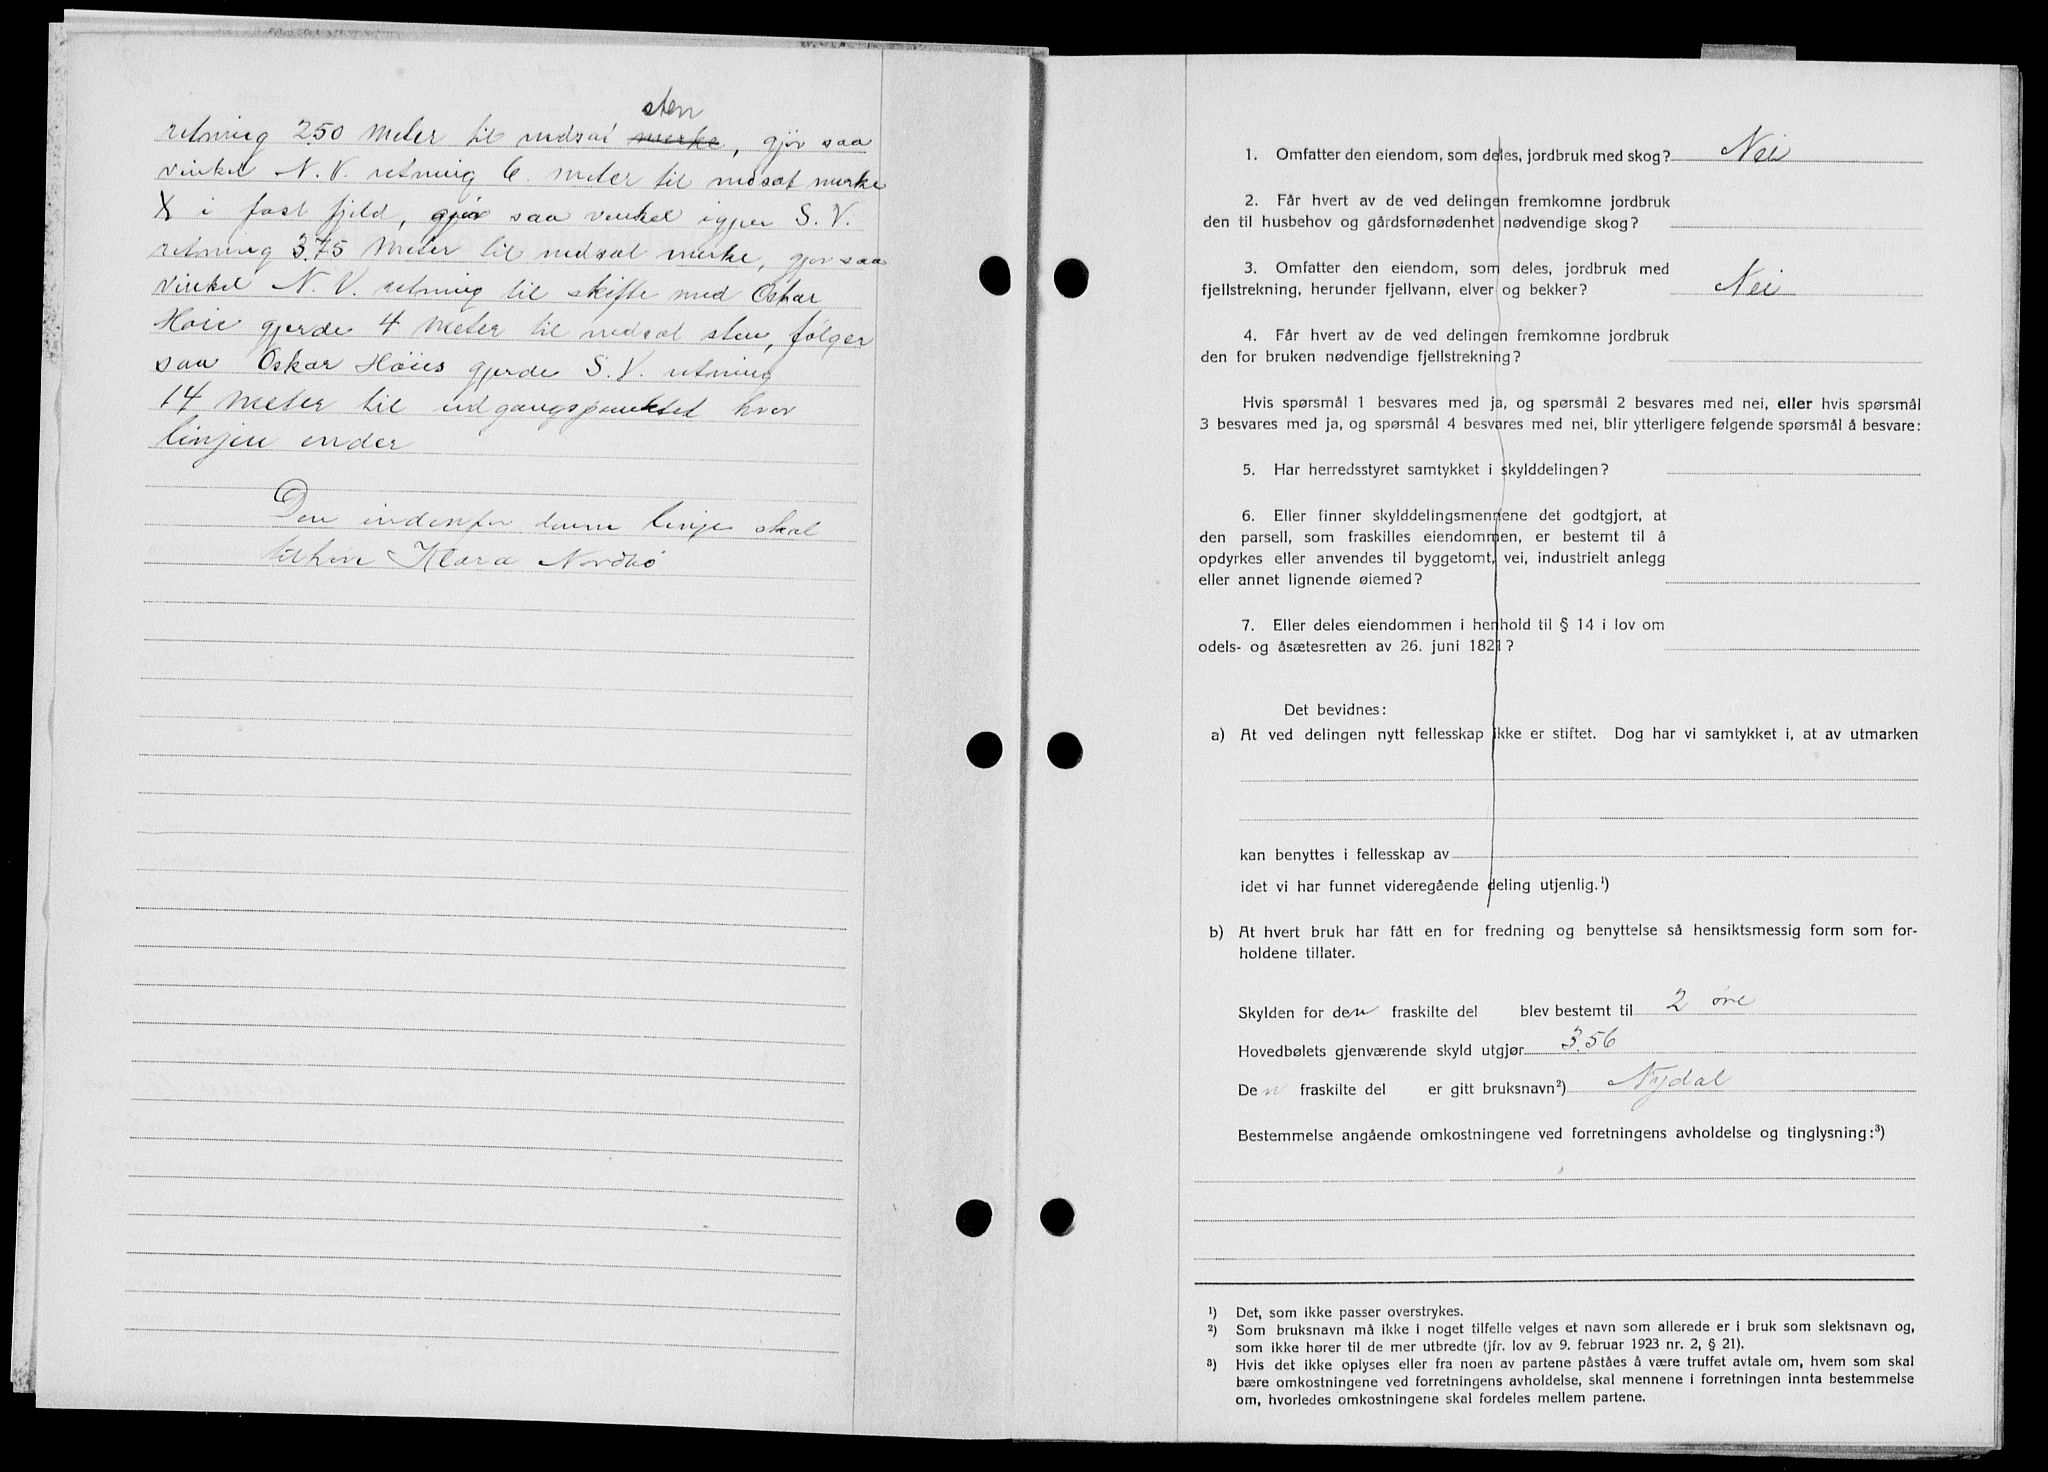 retning 2.50 Meter til nedsat sten merke, gjør saa
vinkel N. V. retning 6. meter til nedsat merke
X i fast fjeld, gjør saa venkel igjen S. V.
retning 3.75 Meter til nedsat merke, gjør saa
vinkel N. V. retning til skifte med Oskar
Höie gjerde 4 Meter til nedsat sten, følger
saa Oskar Höies gjerde S. V. retning
14 meter til udgangspunktet hvor
linjen ender
Den indenfor denne linje skal
tilhøre Klara Nordbö
1. Omfatter den eiendom, som deles, jordbruk med skog? Nei
2. Får hvert av de ved delingen fremkomne jordbruk
den til husbehov og gårdsfornødenhet nødvendige skog?
3. Omfatter den eiendom, som deles, jordbruk med
fjellstrekning, herunder fjellvann, elver og bekker? Nei
4. Får hvert av de ved delingen fremkomne jordbruk
den for bruken nødvendige fjellstrekning?
Hvis spørsmål 1 besvares med ja, og spørsmål 2 besvares med nei, eller hvis spørsmål
3 besvares med ja, og spørsmål 4 besvares med nei, blir ytterligere følgende spørsmål å besvare:
5. Har herredsstyret samtykket i skylddelingen?
6. Eller finner skylddelingsmennene det godtgjort, at
den parsell, som fraskilles eiendommen, er bestemt til å
opdyrkes eller anvendes til byggetomt, vei, industrielt anlegg
eller annet lignende øiemed?
7. Eller deles eiendommen i henhold til § 14 i lov om
odels- og åsætesretten av 26. juni 1821?
Det bevidnes:
a) At ved delingen nytt fellesskap ikke er stiftet. Dog har vi samtykket i, at av utmarken
kan benyttes i fellesskap av
idet vi har funnet videregående deling utjenlig.¹)
b) At hvert bruk har fått en for fredning og benyttelse så hensiktsmessig form som for-
holdene tillater.
Skylden for den fraskilte del blev bestemt til 2 øre
Hovedbølets gjenværende skyld utgjør 3.56
Den fraskilte del er gitt bruksnavn²) Nydal
Bestemmelse angående omkostningene ved forretningens avholdelse og tinglysning:³)
¹) Det, som ikke passer overstrykes.
²) Som bruksnavn må ikke i noget tilfelle velges et navn som allerede er i bruk som slektsnavn og,
som ikke hører til de mer utbredte (jfr. lov av 9. februar 1923 nr. 2, § 21).
³) Hvis det ikke oplyses eller fra noen av partene påståes å være truffet avtale om, hvem som skal
bære omkostningene ved forretningens avholdelse, skal mennene i forretningen innta bestemmelse
om, hvorledes omkostningene skal fordeles mellem partene.